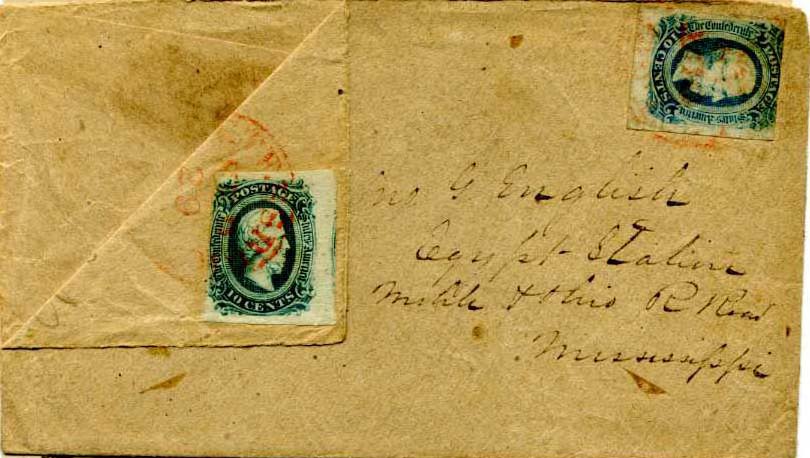 The Confederate
States America
POSTAGE
10 CENTS
POSTAGE
The Confederate
States America
10 CENTS
G English
Egypt Station
Mobile & Ohio R Road
Mississippi